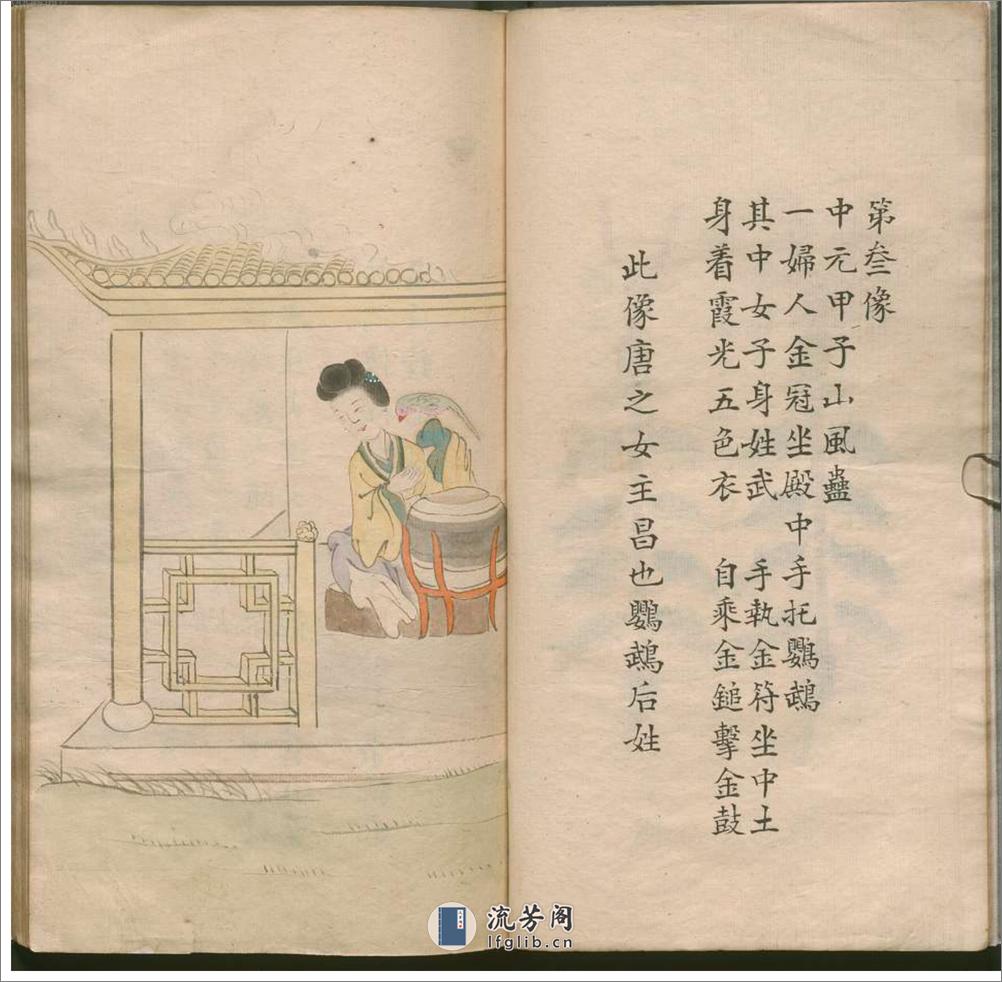 第叁像
中元甲子山風蠱
一婦人金冠坐殿中手托鸚鵡
其中女子身姓武 手執金符坐中土
身着霞光五色衣 自乘金鎚擊金鼓
此像唐之女主昌也鸚鵡后姓
流芳阁
lfglib.cn